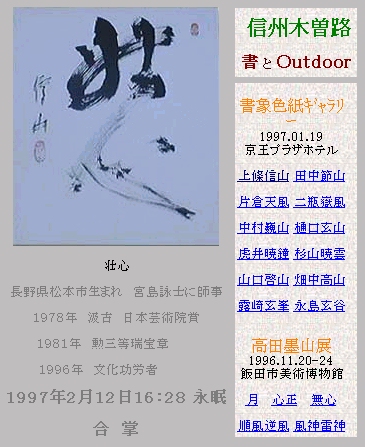 信山
壮心
長野県松本市生まれ 宮島詠士に師事
1978年 汲古 日本芸術院賞
1981年 勳三等瑞宝章
1996年 文化功労者
1997年2月12日16:28 永眠
合 掌
信州木曽路
書とOutdoor
書象色紙ｷﾞｬﾗﾘ
ー
1997.01.19
京王プラザホテル
上條信山 田中節山
片倉天風 二瓶嶽風
中村巍山 樋口玄山
虎井暁鐘 杉山暁雲
山口啓山 畑中高山
露崎玄峯 永島玄谷
高田墨山展
1996.11.20-24
飯田市美術博物館
月 心正 無心
順風逆風 風神雷神